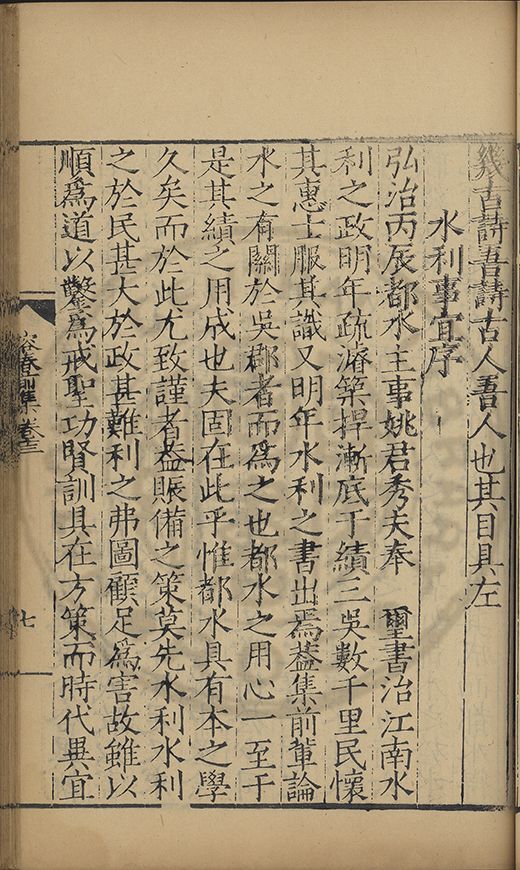 幾古詩吾詩古人吾人也其目具左
水利事宜序
弘治丙辰都水主事姚君秀夫奉 璽書治江南水
利之政明年疏濬築捍漸底于績三吳數千里民懷
其惠士服其識又明年水利之書出焉葢集前軰論
水之有關於吳郡者而爲之也都水之用心一至于
是其績之用成也夫固在此乎惟都水具有本之學
久矣而於此尤致謹者葢賑備之策莫先水利水利
之於民甚大於政甚難利之弗圖顧足爲害故雖以
順爲道以鑿爲戒聖功賢訓具在方策而時代異宜
容春集卷三
七